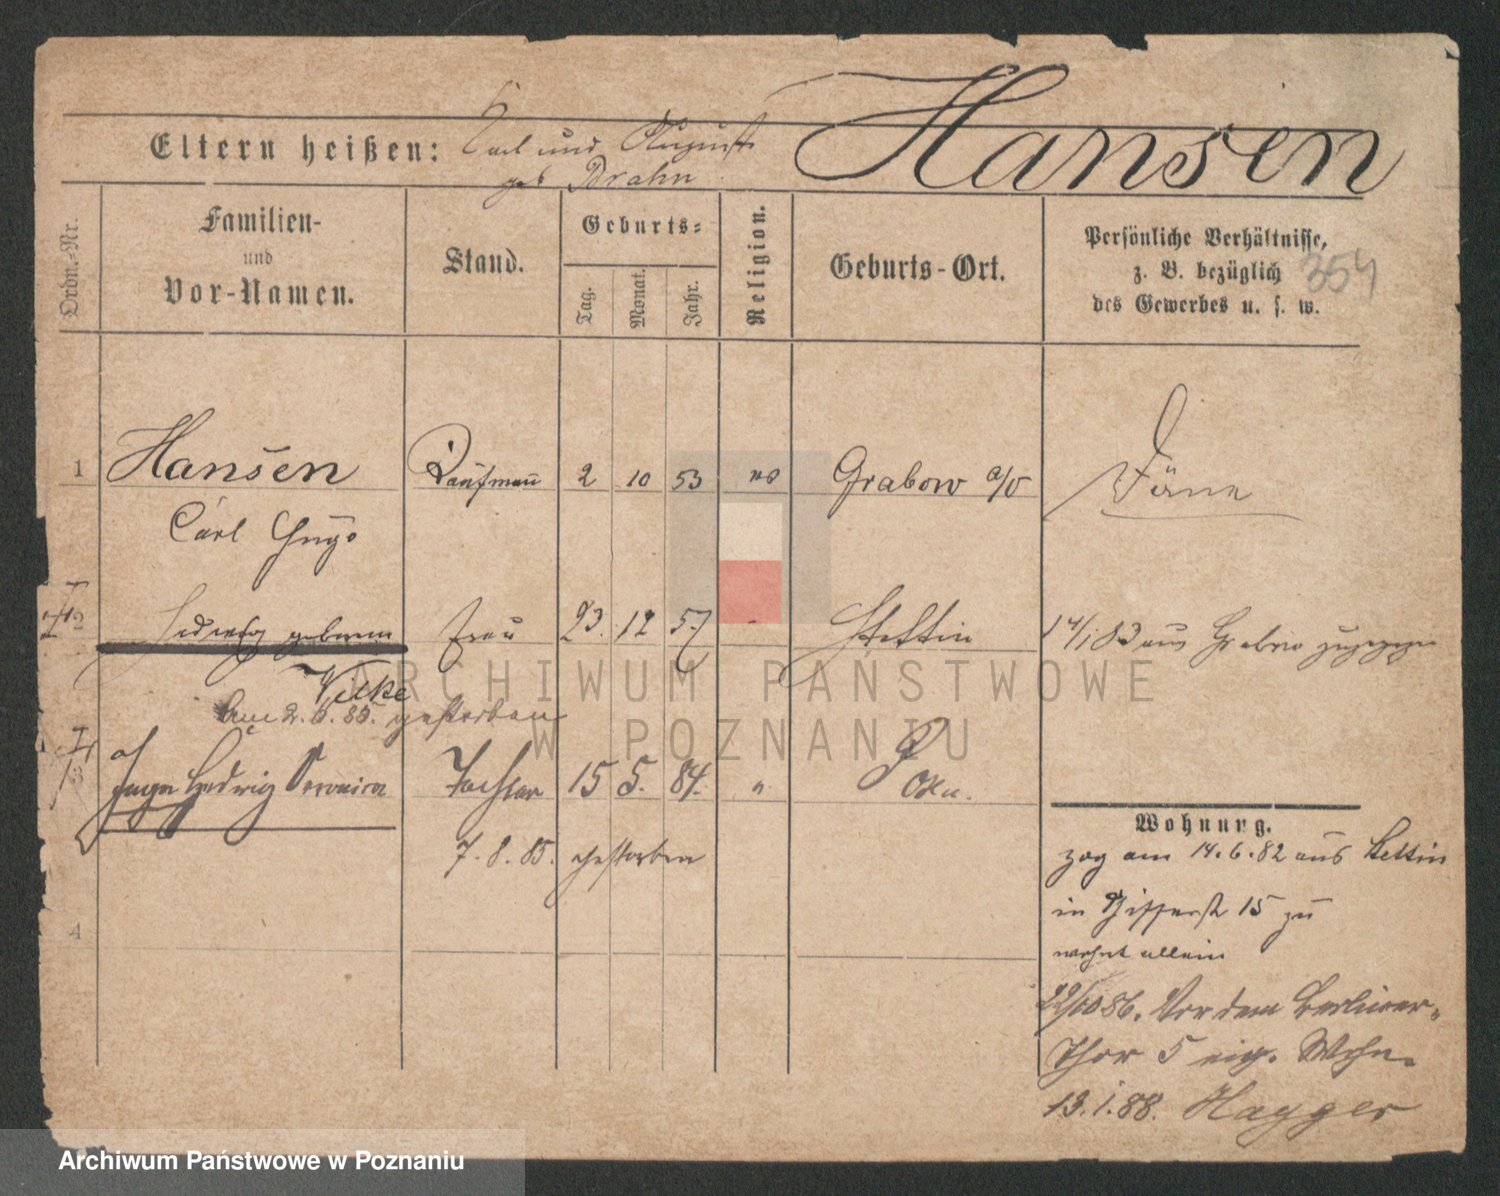 Hansen
Eltern heißen: Carl und August
geb Brahn
Ordn.-Nr.
Familien-
und
Vor-Namen.
Stand.
Geburts-
Tag.
Monat.
Jahr.
Religion.
Geburts-Ort.
Persönliche Verhältnisse,
z. B. bezüglich
des Gewerbes u. s. w.
354
1 Hansen Kaufmann 2 10 53 Grabow a/O Däne
Carl Hugo
2 Hedwig geborene Frau 23. 12 57 Stettin 14/1 83 aus Grabow zugezogen
Velke
Am 2. 6. 85. gestorben
3 Inga Hedwig Veronica Tochter 15 5. 84. " Posen.
7. 8. 85. gestorben
4
Wohnung.
zog am 14. 6. 82 aus Stettin
in 15 zu
wohnt allein
22/10 86. Vor dem Berliner-
Thor 5 eig. Wohn.
13. 1. 88. Hagger
ARCHIWUM PAŃSTWOWE
W POZNANIU
Archiwum Państwowe w Poznaniu